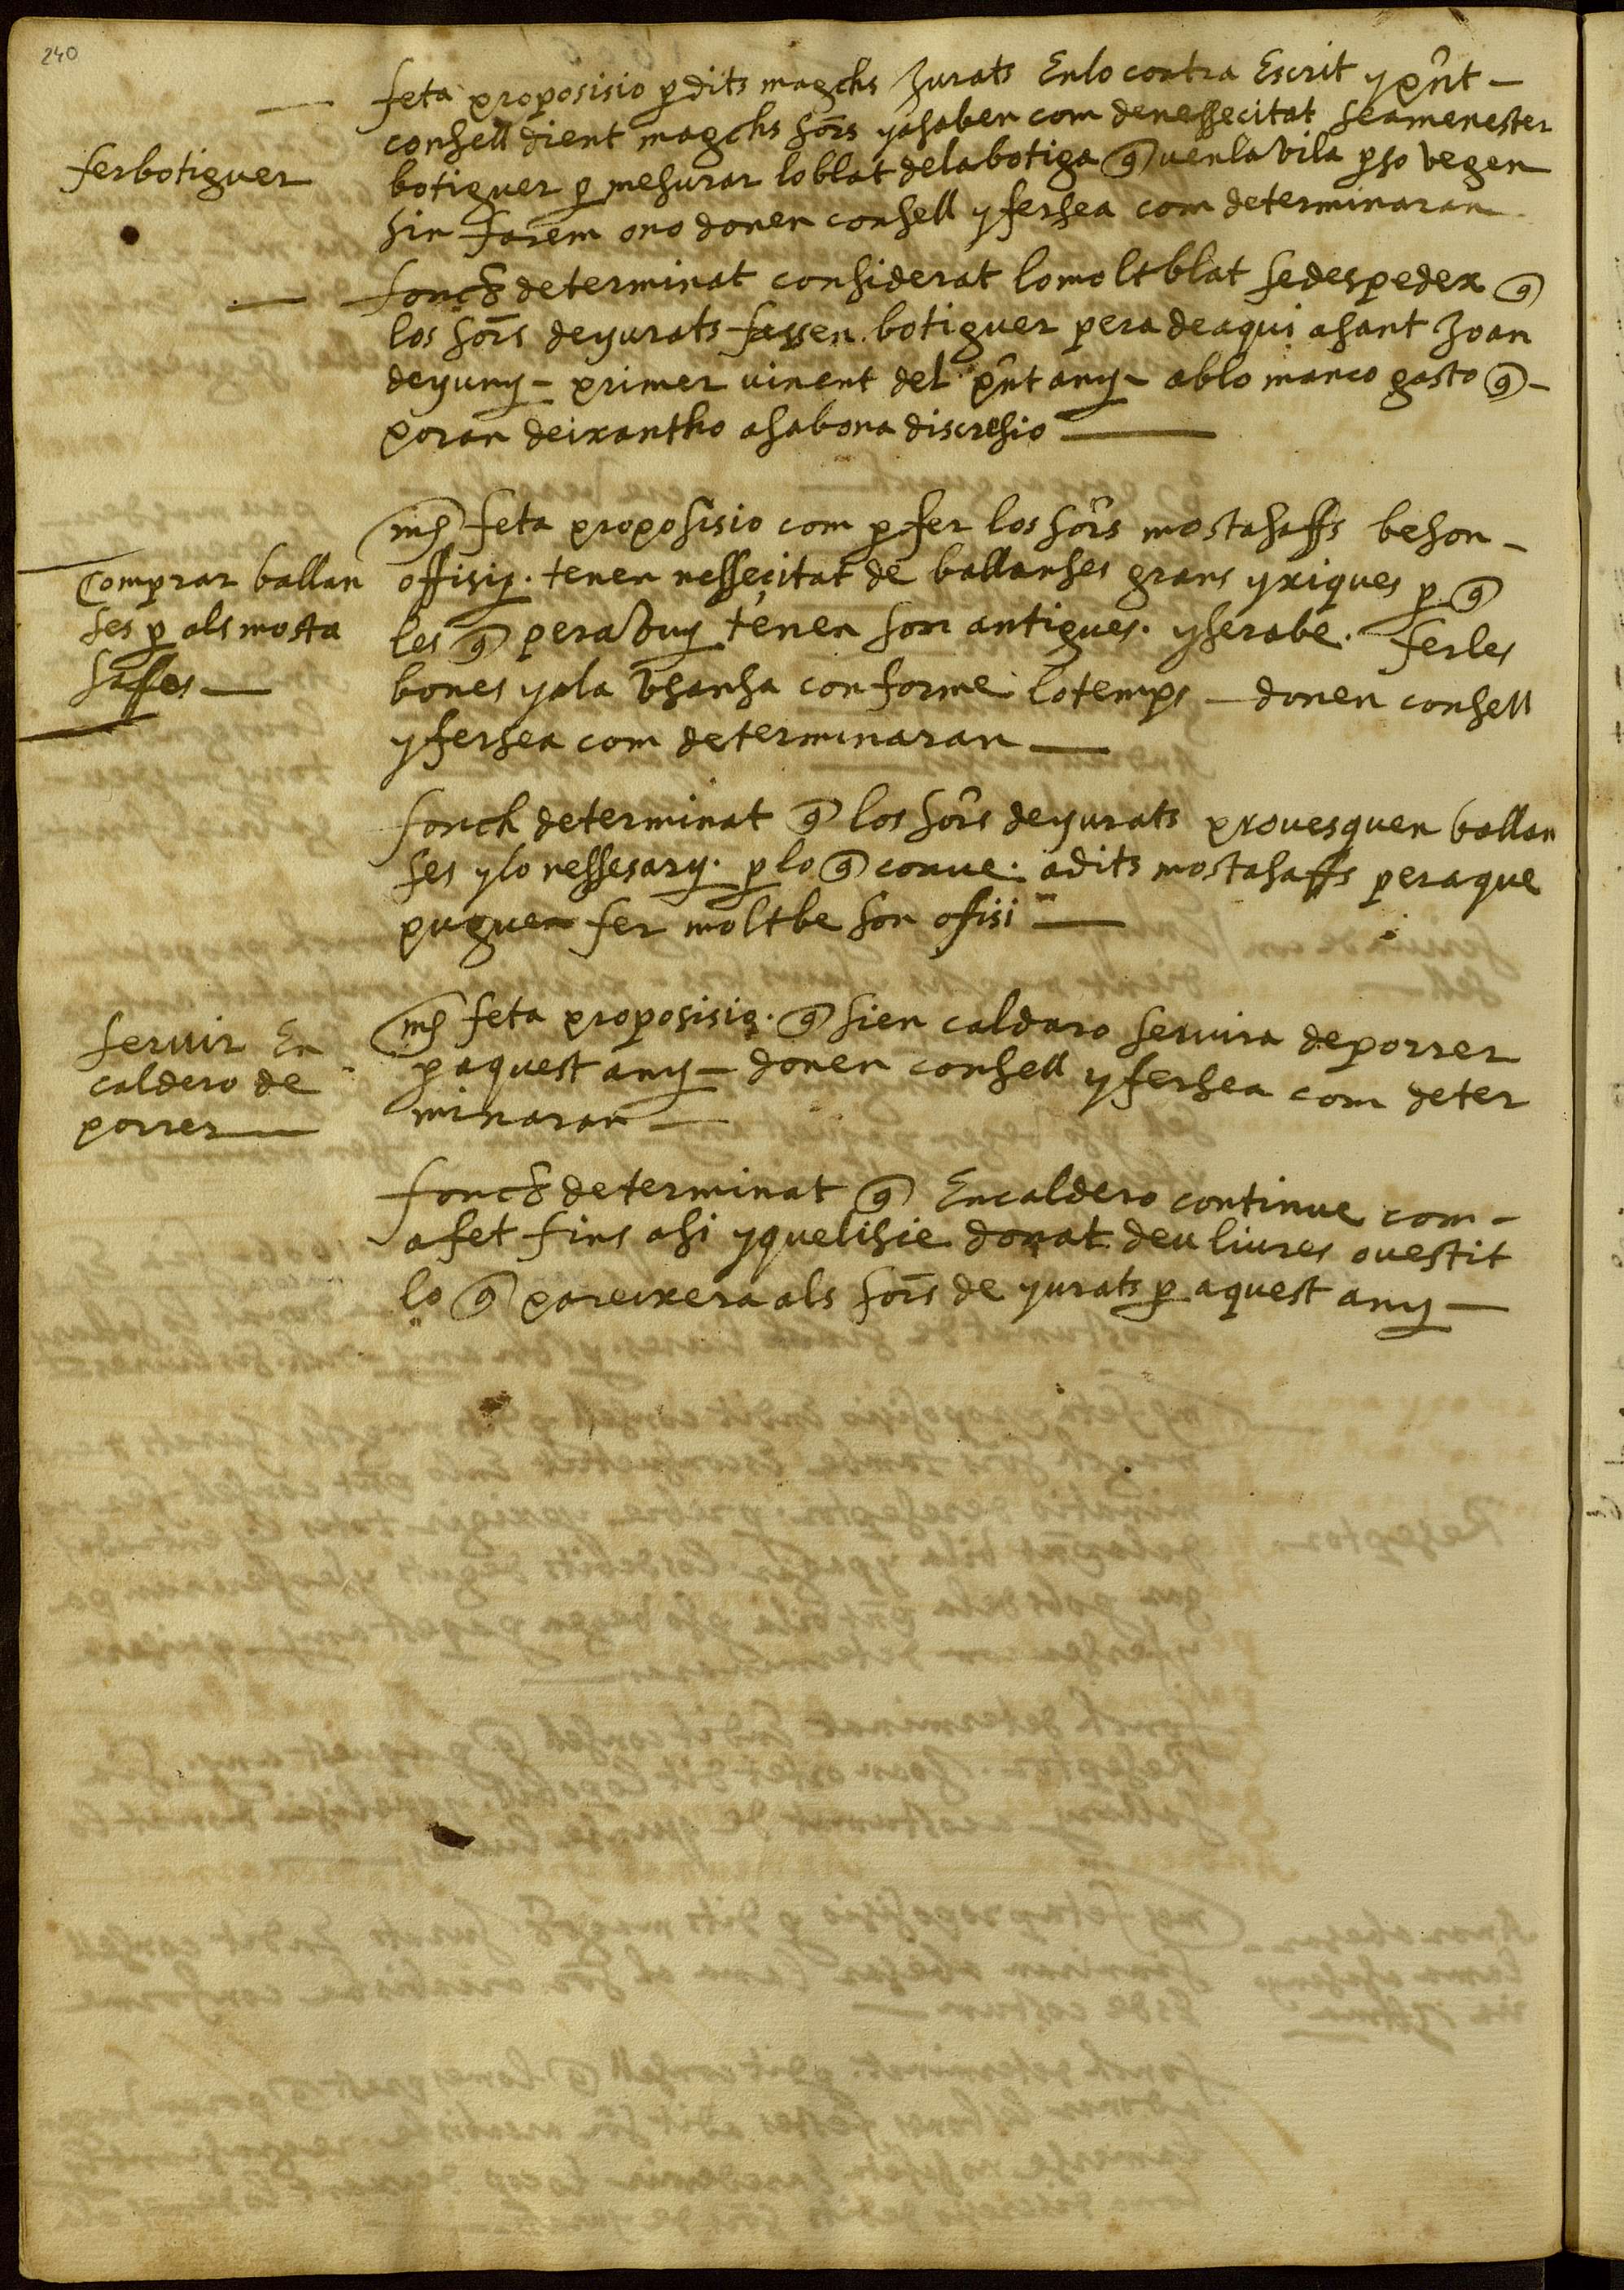 240
feta proposisio p dits magchs Jurats En lo contra Escrit y pñt –
consell dient magchs sors ya saben com de nessecitat sea menester
fer botiguer
botiguer p mesurar lo blat de la botiga q ven la vila p so vegen
sin farem o no donen consell y fersea com determinaran
fonch determinat considerat lo molt blat se despedex q
los sors de yurats fassen botiguer pera de aqui a sant Joan
de yuny – primer vinent del pñt any – ab lo manco gasto q –
poran deixantho a sa bona discresio
mes feta proposisio com p fer los sors mostasaffs be son –
Comprar ballan
ses p als mosta
saffes
offisiy. tenen nessecitat de ballanses grans y xiques p q
les q pera vuy tenen son antigues. y sera be. ferles
bones y a la vsansa conforme lo temps – donen consell
y fersea com determinaran
fonch determinat q los sors de yurats provesquen ballan
ses y lo nessesary. p lo q conve. a dits mostasaffs pera que
puguen fer molt be son ofisi
mes feta proposisio. q si en caldaro servira de porrer
servir En
caldero de
porrer
p aquest any – donen consell y fersea com deter
minaran
fonch determinat q En caldero continue com –
a fet fins asi y que li sie donat deu liures o vestit
lo q pareixera als sors de yurats p aquest any –